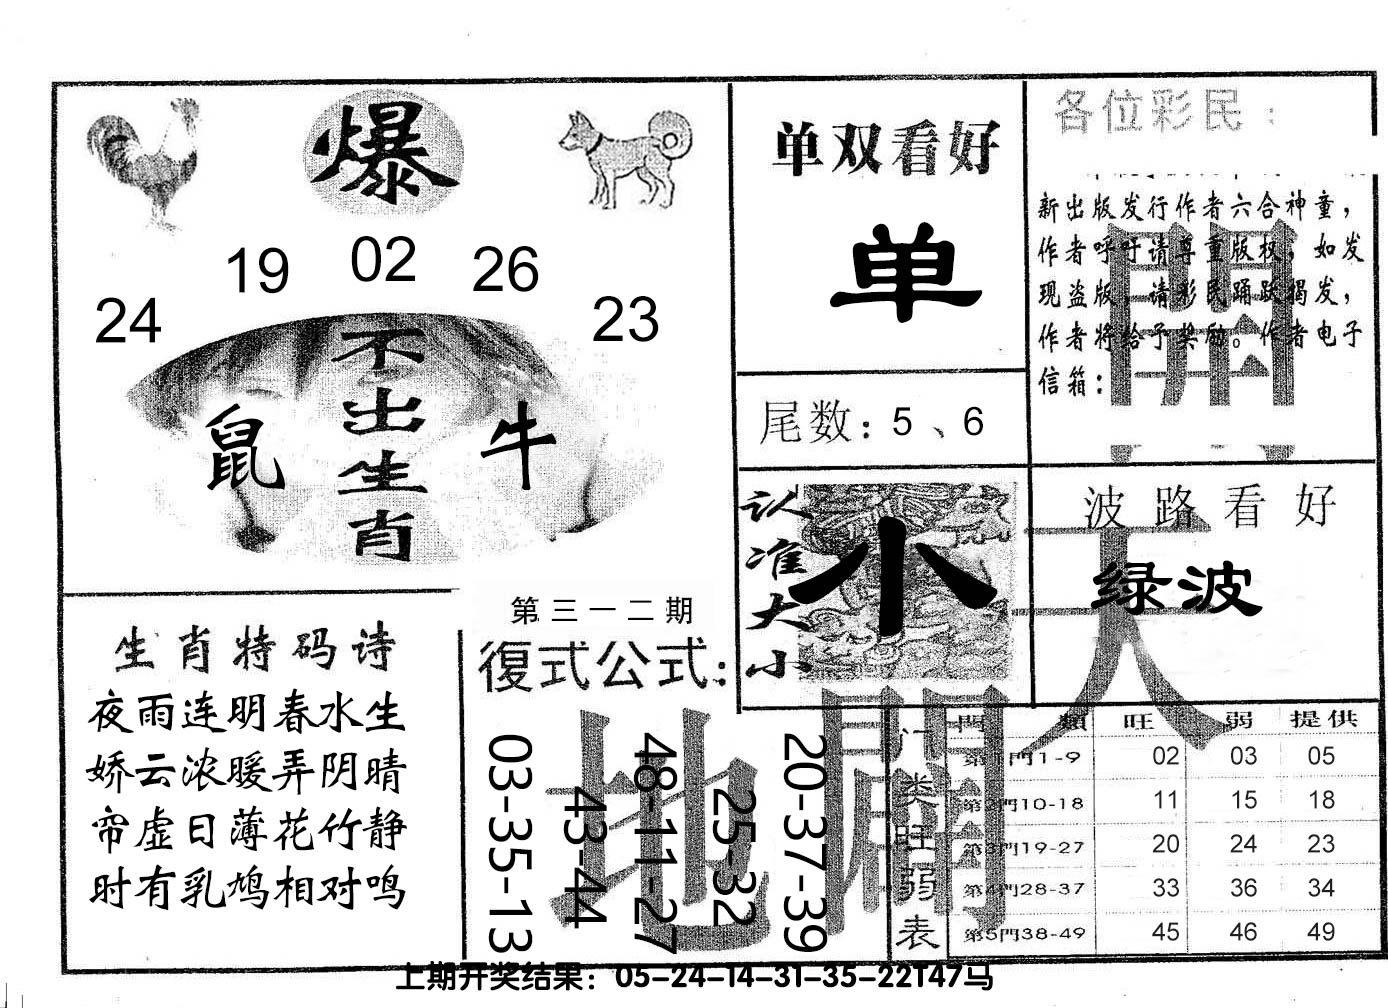 爆
19 02 26
24 23
不出生肖
鼠
牛
单双看好
单
尾数：5、6
各位彩民：
新出版发行作者六合神童，
作者呼吁请尊重版权，如发
现盗版，请彩民踊跃揭发，
作者将给予奖励。作者电子
信箱：
认准大小
小
波路看好
绿波
天
地
生肖特码诗
夜雨连明春水生
娇云浓暖弄阴晴
帘虚日薄花竹静
时有乳鸠相对鸣
第三一二期
復式公式：
03-35-13
43-44
48-11-27
25-32
20-37-39
门类旺弱表
門 類 旺 弱 提供
第1門1-9 02 03 05
第2門10-18 11 15 18
第3門19-27 20 24 23
第4門28-37 33 36 34
第5門38-49 45 46 49
上期开奖结果：05-24-14-31-35-22T47马